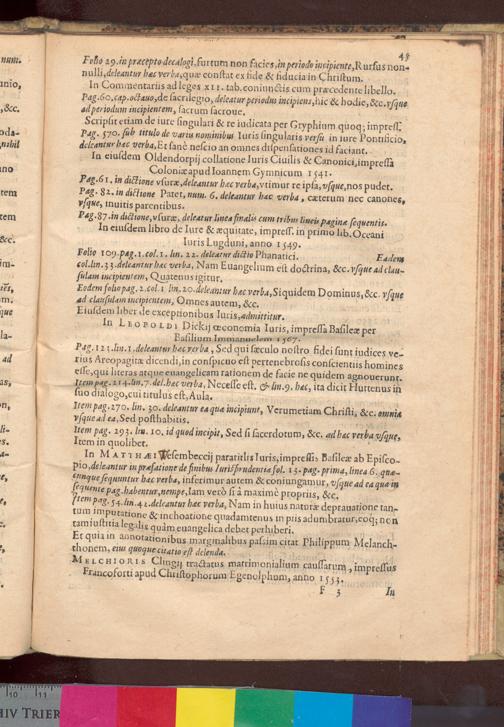 45
Folio 29. in præcepto decalogi, furtum non facies, in periodo incipiente, Rursus non-
nulli, deleantur hæc verba, quæ constat ex fide & fiducia in Christum.
In Commentariis ad leges XII. tab. coniunctis cum præcedente libello.
Pag. 60. cap. octauo, de sacrilegio, deleatur periodus incipiens, hic & hodie, &c. vsque
ad periodum incipientem, sacrum sacroue.
Scripsit etiam de iure singulari & re iudicata per Gryphium quoq; impress.
Pag. 570. sub titulo de variis nominibus Iuris singularis versu in iure Pontificio,
deleantur hæc verba, Et sanè nescio an omnes dispensationes id faciant.
In eiusdem Oldendorpij collatione Iuris Ciuilis & Canonici, impressa
Coloniæ apud Ioannem Gymnicum 1541.
Pag. 61. in dictione vsuræ, deleantur hæc verba, vtimur re ipsa, vsque, nos pudet.
Pag. 82. in dictione Patet, num. 6. deleantur hæc verba, cæterum nec canones,
vsque, inuitis parentibus.
Pag. 87. in dictione, vsuræ, deleatur linea finalis cum tribus lineis paginæ sequentis.
In eiusdem libro de Iure & æquitate, impress. in primo lib. Oceani
Iuris Lugduni, anno 1549.
Folio 109. pag. 1. col. 1. lin. 22. deleatur dictio Phanatici. Eadem
col. lin. 33. deleantur hæc verba, Nam Euangelium est doctrina, &c. vsque ad clau-
sulam incipientem, Quatenus igitur.
Eodem folio pag. 2. col. 1 lin. 20. deleantur hæc verba, Siquidem Dominus, &c. vsque
ad clausulam incipientem, Omnes autem, &c.
Eiusdem liber de exceptionibus Iuris, admittitur.
In LEOPOLDI Dickij œconomia Iuris, impressa Basileæ per
Basilium Immanuelem 1567.
Pag. 121. lin. 1. deleantur hæc verba, Sed qui sæculo nostro fidei sunt iudices ve-
rius Areopagitæ dicendi, in conspicuo est pertenebrosos conscientis homines
esse, qui literas atque euangelicam rationem de facie ne quidem agnouerunt.
Item pag. 214. lin. 7. del. hæc verba, Necesse est. & lin. 9. hæc, ita dicit Huttenus in
suo dialogo, cui titulus est, Aula.
Item pag. 270. lin. 30. deleantur ea quæ incipiunt, Verumetiam Christi, &c. omnia
vsque ad ea, Sed posthabitis.
Item pag. 293. lin. 10. id quod incipit, Sed si sacerdotum, &c. ad hæc verba vsque,
Item in quolibet.
In MATTHÆI Wesembeccij paratitlis Iuris, impressis Basileæ ab Episco-
pio, deleantur in præfatione de finibus Iurisprudentiæ fol. 13. pag. prima, linea 6. quæ-
cunque sequuntur hæc verba, inferimur autem & coniungamur, vsque ad ea quæ in
sequente pag. habentur, nempe, Iam verò si à maximè propriis, &c.
Item pag. 54. lin. 42. deleantur hæc verba, Nam in huius naturæ deprauatione tan-
tum imputatione & inchoatione quadamtenus in piis adumbratur, eoq; non
tam iustitia legalis quàm euangelica debet perhiberi.
Et quia in annotationibus marginalibus passim citat Philippum Melanch-
thonem, eius quoque citatio est delenda.
MELCHIORIS Clingij tractatus matrimonialium caussarum, impressus
Francoforti apud Christophorum Egenolphum, anno 1553.
F 3 In
10 11
HIV TRIER